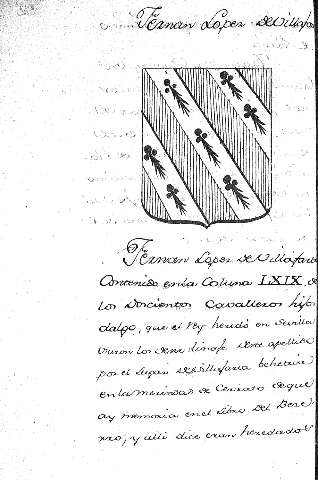 Fernan Lopez de Villafa
Fernan Lopez de Villafaña
Contenido en la Coluna LXIX, de
los Doscientos Cavalleros hijos
dalgo, que el Rey heredó en Sevilla
los deste linage deste apellido
por el Lugar de Villafaria behetria
en la merindad de Cerrato de que
ay memoria en el Libro del Beze
rro, y alli dice eran heredados